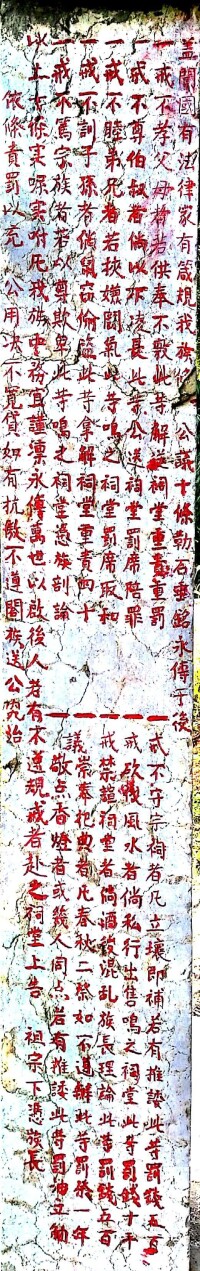 盖聞國有法律家有箴規我族 公議十條勒石垂銘永傳于後
一戒不孝父母者若供奉不敷此等解送祠堂重責重罰
一戒不尊伯叔者倘以下凌長此等公送祠堂罰席陪罪
一戒不睦弟兄者若挾嫌鬪氣此等鳴之祠堂罰席取和
一戒不訓子孫者倘鼠窃偷盜此等拿解祠堂重責四十
一戒不篤宗族者若以尊欺卑此等鳴之祠堂憑族剖論
一戒不守宗 者凡立壞即補若有推諉此等罰錢五百
一戒砍 風水者倘私行出售鳴之祠堂此等罰錢十千
一戒禁 祠堂者倘酒後混乱族長理論此等罰錢五百
一議崇奉祀典者凡春秋二祭如不遵辦此等罰祭一年
一敬点香燈者或幾人同点若有推諉此等罰油五觔
以上六條实 实咐凡我族中務宜謹凛永傳萬世以啟後人若有不遵規戒者赴之祠堂上告 祖宗下憑族長
依條責罰以充 公用决不寬貸如有抗敵不遵閤族送公究治